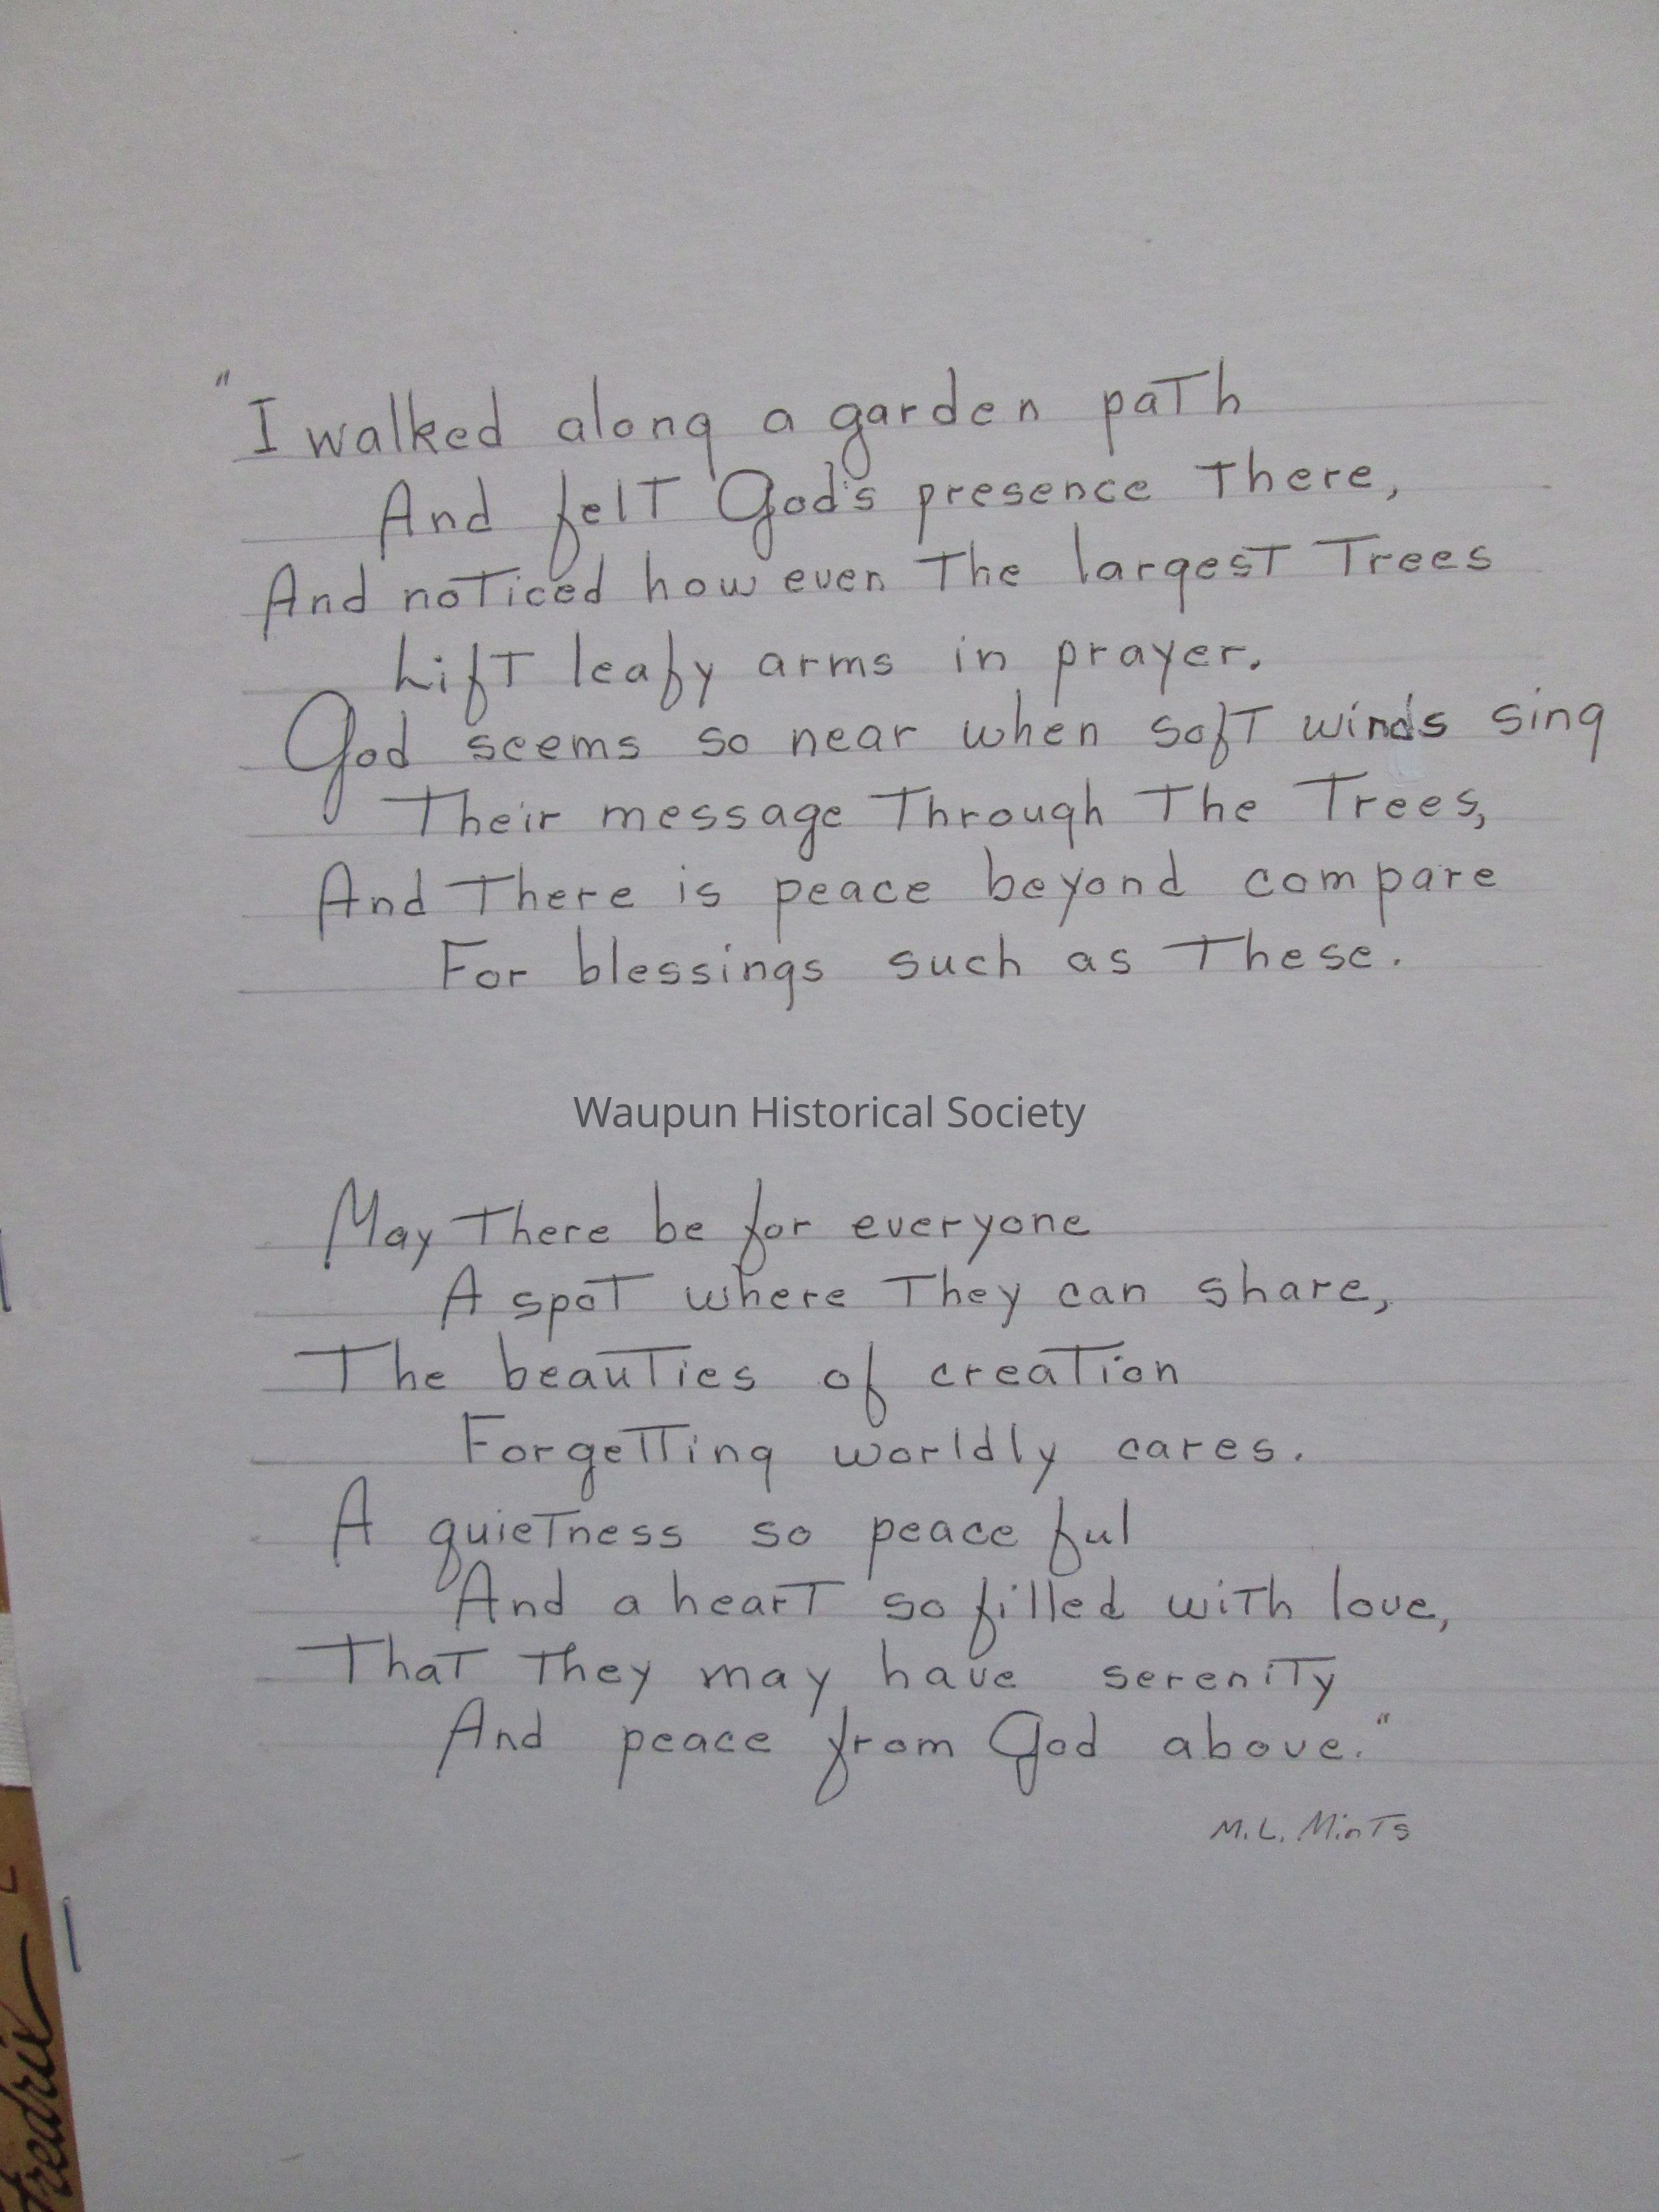 "I walked along a garden path
And felt God's presence there,
And noticed how even the largest trees
Lift leafy arms in prayer.
God seems so near when soft winds sing
Their message through the trees,
And there is peace beyond compare
For blessings such as these.
Waupun Historical Society
May there be for everyone
A spot where they can share,
The beauties of creation
Forgetting worldly cares.
A quietness so peaceful
And a heart so filled with love,
That they may have serenity
And peace from God above."
M.L. Mints